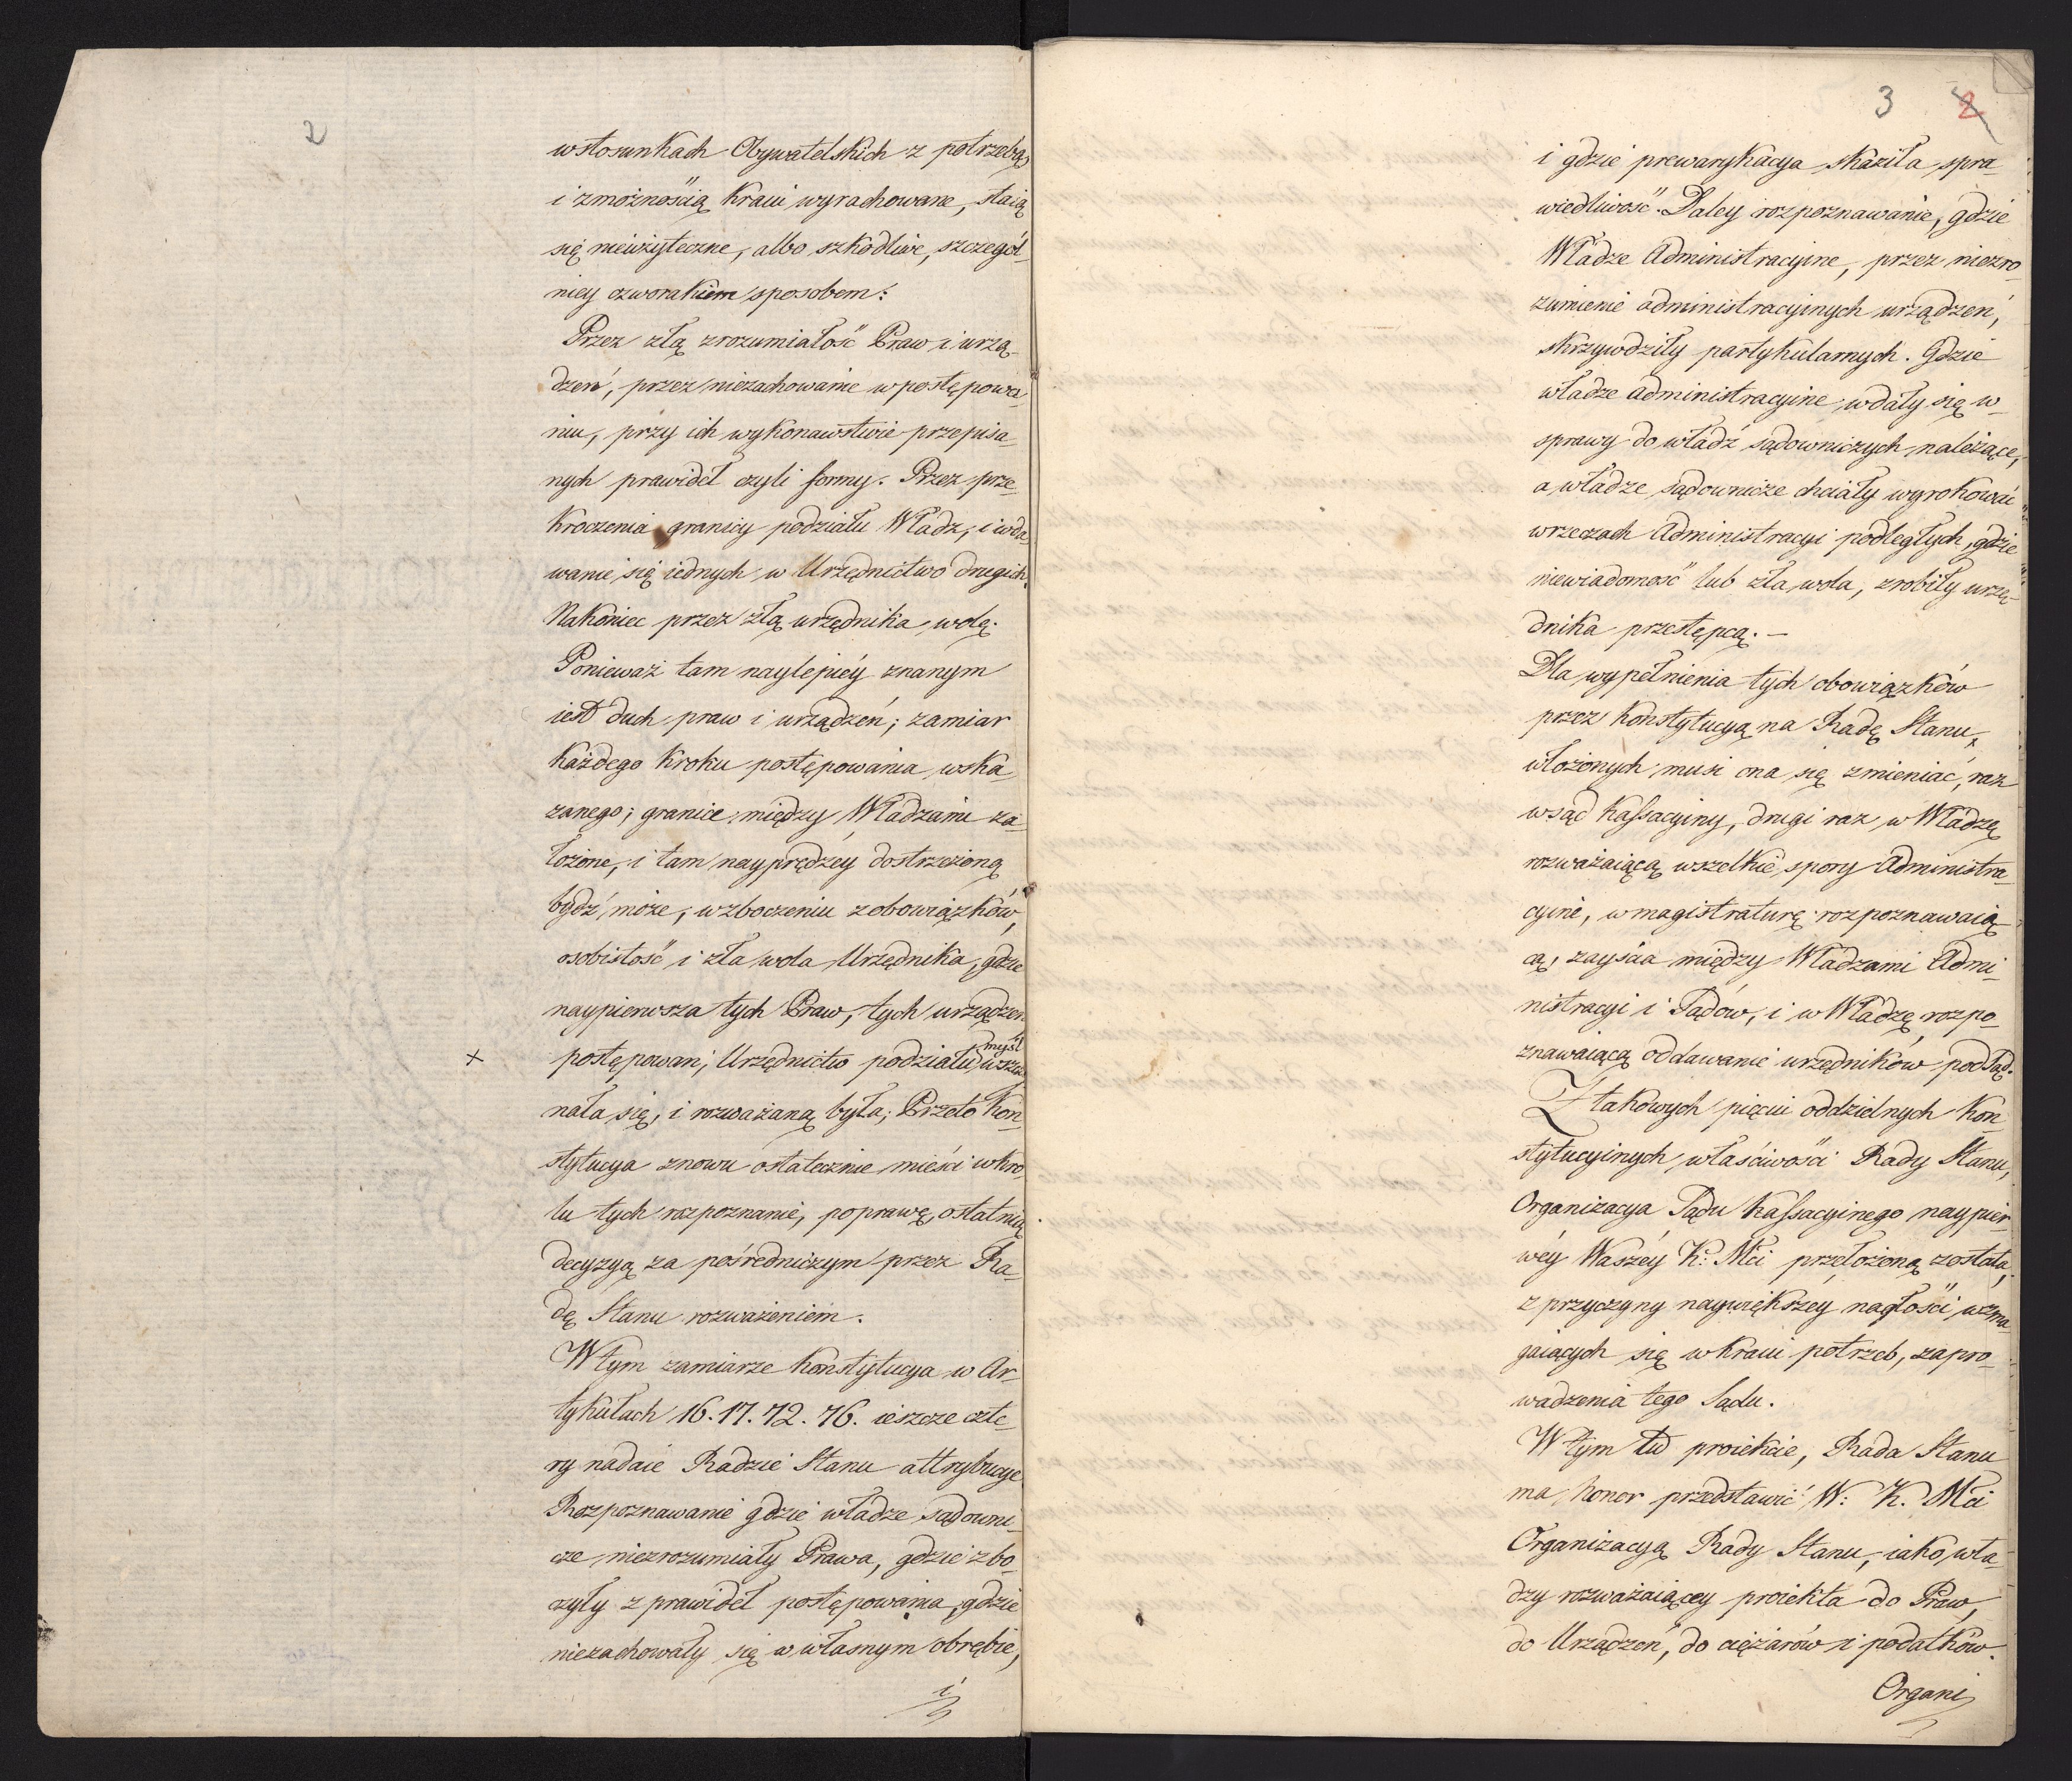 2
w stosunkach Obywatelskich z potrzebą
i zmożnością Kraiu wyrachowane, staią
się nieużyteczne, albo szkodliwe, szczegól-
niey czworakiem sposobem:
Przez złą zrozumiałość Praw i urzą-
dzeń, przez niezachowanie w postępowa-
niu, przy ich wykonawstwie przepisa-
nych prawideł czyli formy. Przez prze-
kroczenia granicy podziału Władz, i wda-
wanie się iednych w Urzędnictwo drugich.
Nakoniec przez złą urzędnika wolę.
Ponieważ tam naylepiéy znanym
iest duch praw i urządzeń; zamiar
każdego kroku postępowania wska-
zanego; granice między Władzami za-
łożone, i tam nayprędzéy dostrzeżoną
bydź może, w zboczeniu z obowiązków,
osobistość i zła wola Urzędnika, gdzie
naypierwsza tych Praw, tych urządzen
myśl
× postępowan; Urzędnictw podziału wszcze
nała się, i rozważaną była; Przeto Kon-
stytucya znowu ostatecznie mieści w Kró-
lu tych rozpoznanie, poprawę, ostatnią
decyzyą za pośredniczym przez Ra-
dę Stanu rozważeniem.
W tym zamiarze Konstytucya w Ar-
tykułach 16. 17. 72. 76. ieszcze czte-
ry nadaie Radzie Stanu attrybucye
Rozpoznawanie gdzie władze sądowni-
cze niezrozumiały Prawa, gdzie zbo-
czyły z prawideł postępowania, gdzie
niezachowały się w własnym obrębie,
i
3 2
i gdzie prewarykacya skaziła spra-
wiedliwość. Daley rozpoznawanie, gdzie
Władze Administracyine, przez niezro-
zumienie administracyinych urządzeń,
skrzywdziły partykularnych. Gdzie
władze administracyine wdały się w
sprawy do władz sądowniczych należące,
a władze sądownicze chciały wyrokować
w rzeczach Administracyi podległych, gdzie
niewiadomość lub zła wola, zrobiły urzę-
dnika przestępcą. –
Dla wypełnienia tych obowiązków
przez Konstytucyą na Radę Stanu
włożonych musi ona się zmieniać, raz
w sąd Kassacyiny, drugi raz w Władzę
rozważaiącą wszelkie spory Administra-
cyine, w magistraturę rozpoznawaią-
cą, zayścia między Władzami Admi-
nistracyi i Sądów, i w Władzę rozpo-
znawaiącą oddawanie urzędników pod Sąd.
Z takowych pięciu oddzielnych Kon-
stytucyinych właściwości Rady Stanu,
Organizacya Sądu Kassacyinego naypier-
wéy Waszéy K: Mći przełożoną została,
z przyczyny naywiększey nagłości wzma-
gaiących się w kraiu potrzeb, zapro-
wadzenia tego Sądu.
W tym tu proiekcie, Rada Stanu
ma honor przedstawić W: K. Mći
Organizacyą Rady Stanu, iako wła-
dzy rozważaiącey proiekta do Praw,
do Urządzeń, do ciężarów i podatków.
Organi